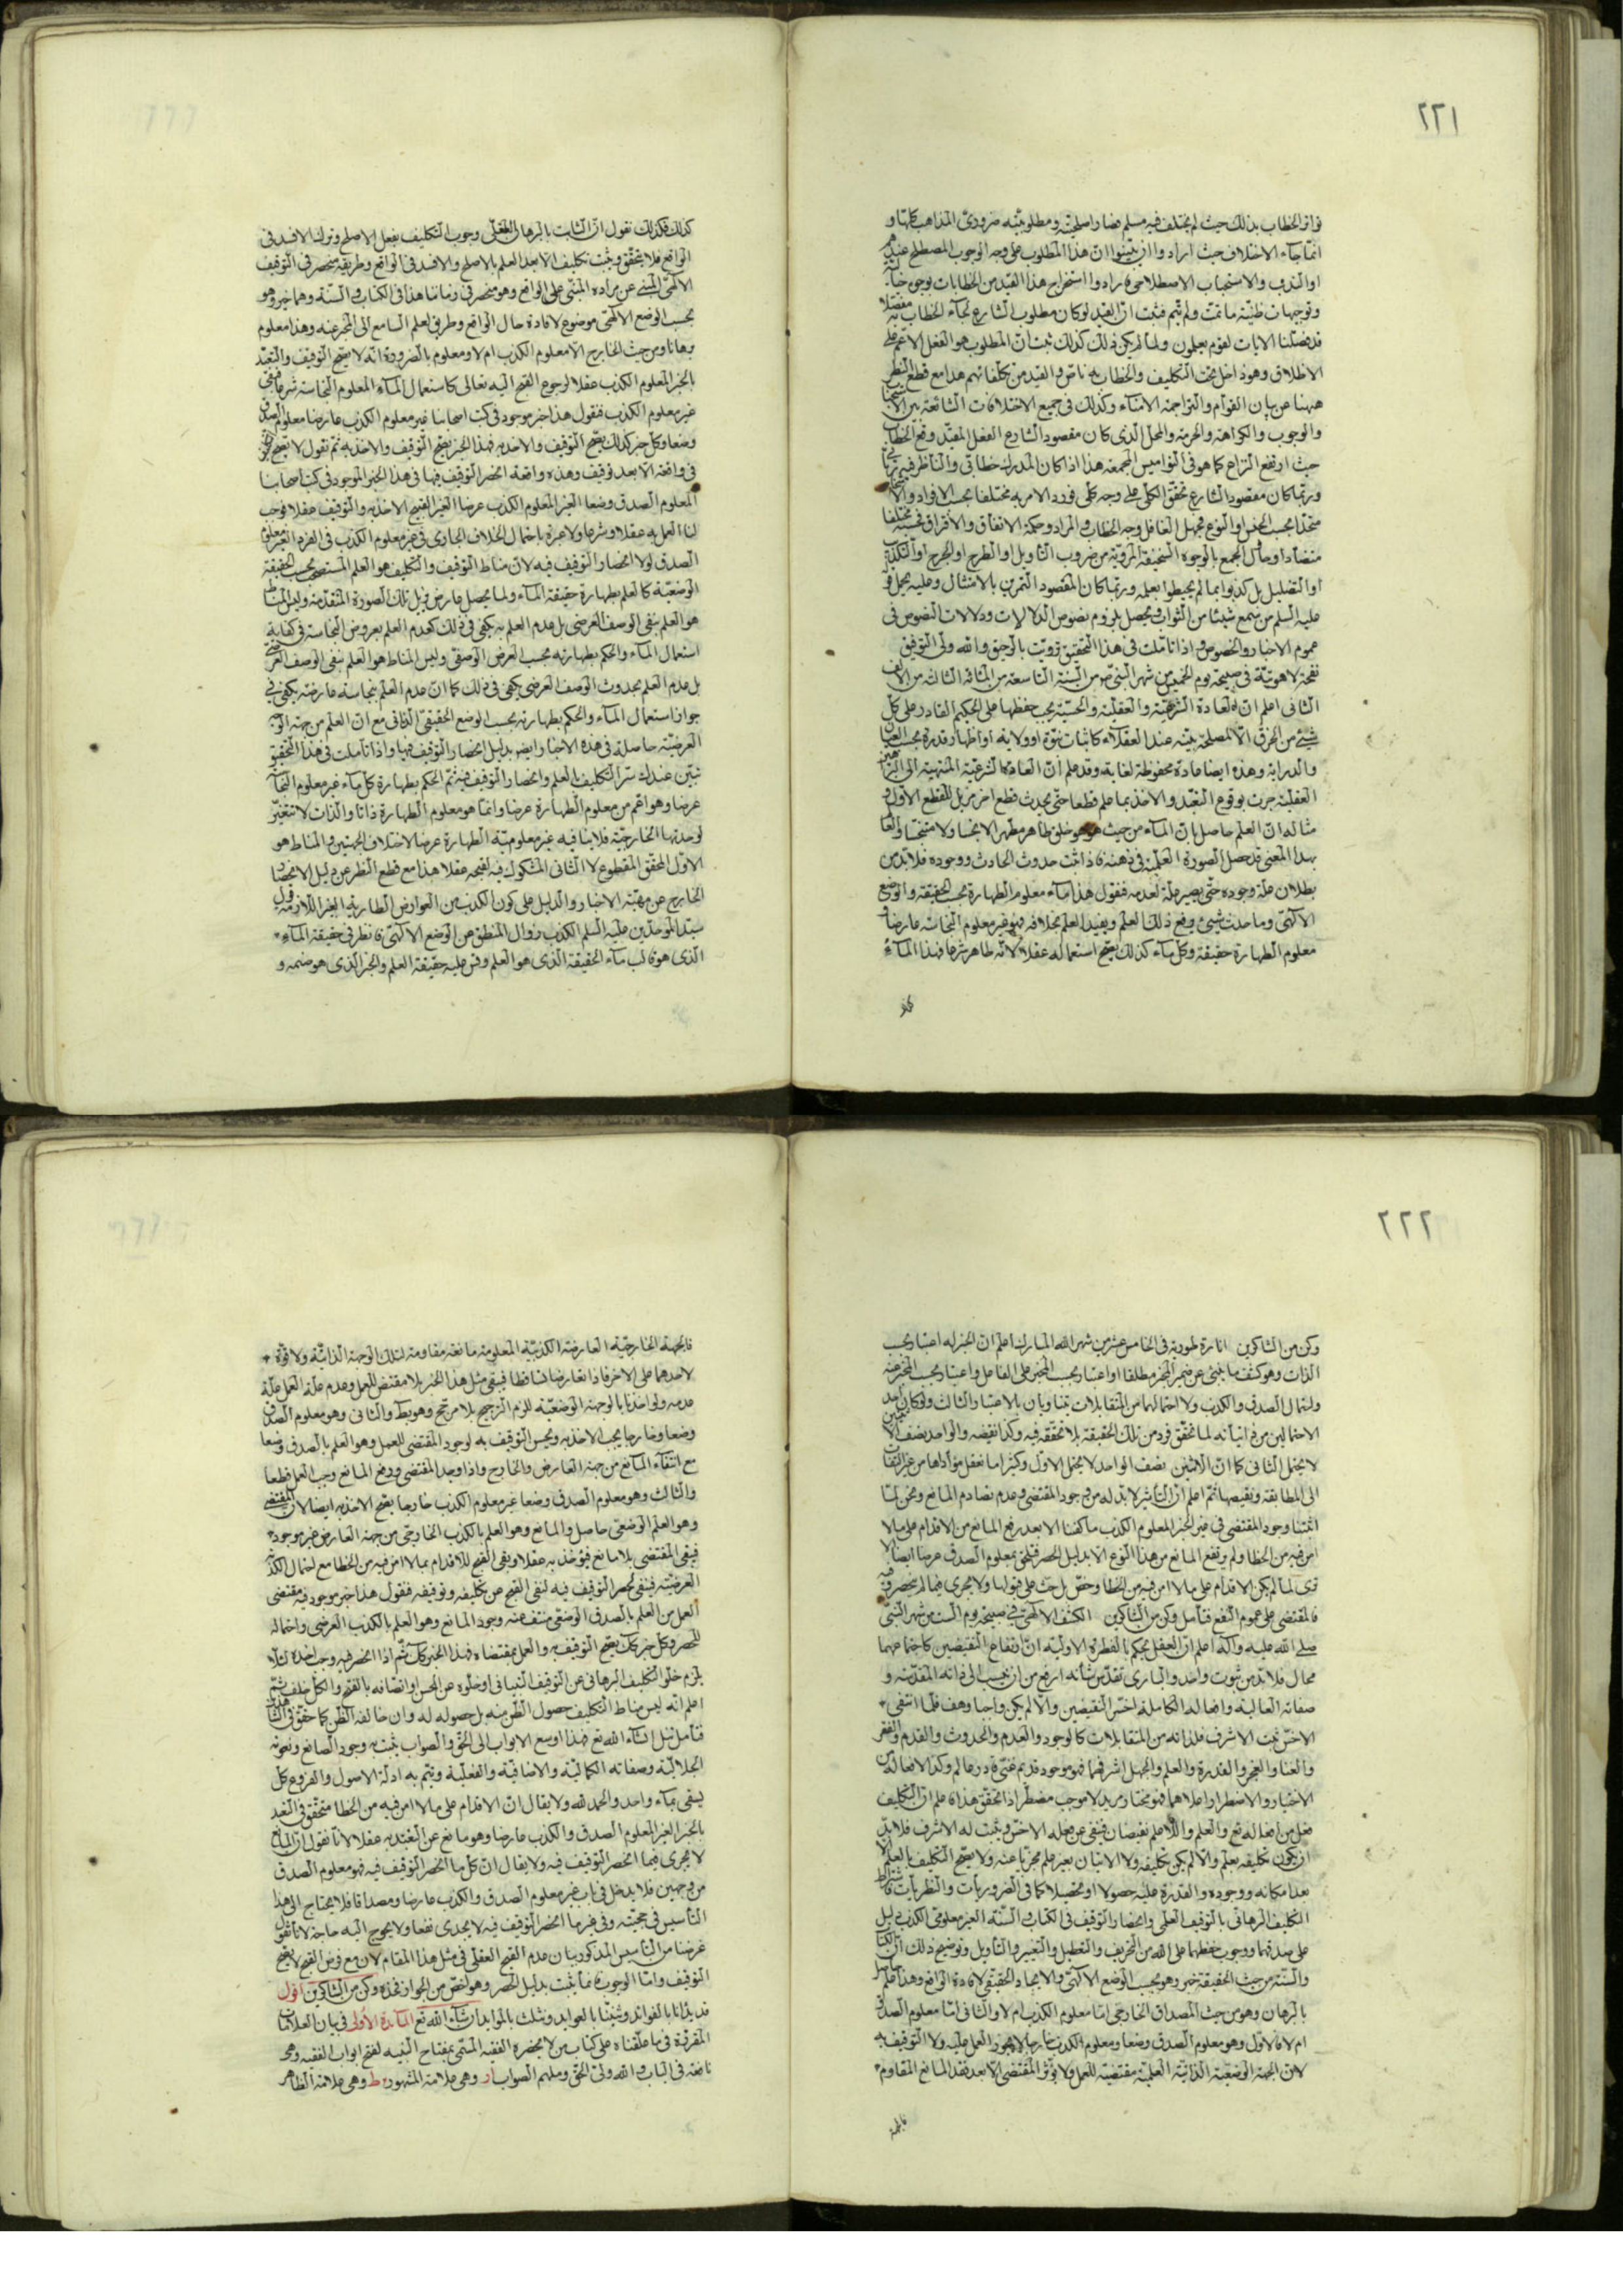 ٢٢١
فواتر الخطاب بذلك حيث لم يختلف فيه مسلم فصار اصلحيته ومطلوبيته ضروري المذاهب كلها و
انما جاء الاختلاف حيث ارادوا ان يثبتوا ان هذا المطلوب على وجه الوجوب المصطلح عندهم
او الندب والاستحباب الاصطلاحي فارادوا استخراج هذا القيد من الخطابات بوجوه
وتوجيهات ظنية ما تمت ولم يتم فثبت ان القيد لو كان مطلوب الشارع لجاء الخطاب به مفصلا
قد فصلنا الايات لقوم يعلمون ولما لم يكن ذلك كذلك ثبت ان المطلوب هو الفعل الاعم على
الاطلاق وهو داخل تحت التكليف والخطاب به ناص والقيد من تكلفاتهم هذا مع قطع النظر
ههنا عن بيان القوام والتراجمة الامناء وكذلك في جميع الاختلافات الشائعة بين
والوجوب والكراهة والحرمة والمحل الذي كان مقصود الشارع الفعل المقيد وقع الخطاب
حيث ارتفع النزاع كما هو في النواميس المجمعة هذا اذا كان المدرك خطابي والناظر فيه
وربما كان مقصود الشارع تحقق الكلي على وجه كلي فورد الامر به مختلفا بحسب الافراد
متحدا بحسب الجنس او النوع فجهل الغافل وجه الخطاب والمراد وحكمة الاتفاق والافتراق فحسبه مختلفا
متضادا وحاول الجمع بالوجوه السخيفة المروية من ضروب التأويل او الطرح او الجرح او التكذيب
او التضليل بل كذبوا بما لم يحيطوا بعلمه وربما كان المقصود التمرين بالامتثال وعليه يحمل قوله
عليه السلم من سمع شيئا من الثواب فيحصل بلزوم نصوص الدلالات ودلالات النصوص في
عموم الاخبار والخصوص واذا تأملت في هذا التحقيق ترويت بالرحيق والله ولي التوفيق
نفحة لاهوتية في صبيحة يوم الخميس من شهر النبي من السنة التاسعة من المائة الثالثة من الالف
الثاني اعلم ان العادة الشرعية والعقلية والحسية يجب حفظها على الحكيم القادر على كل
شيئ من الخرق الا لمصلحة بينة عند العقلاء كاثبات نبوة او ولاية او اظهار قدرة بحسب
والدراية وهذه ايضا عادة محفوظة لغاية وقد علم ان العادة الشرعية المنتهية الى
العقلية جرت بوقوع التعبد والاخذ بما علم قطعا حتى يحدث قطع اخر مزيل للقطع الاول و
مثاله ان العلم حاصل بان الماء من حيث هو هو خلق طاهر مطهرا لا نجسا ولا متنجسا
بهذا المعنى قد حصل الصورة العلمية في ذهنه فاذا ثبت حدوث الحادث ووجوده فلابد من
بطلان علة وجوده حتى يصير علة لعدمه فنقول هذا ماء معلوم الطهارة بحسب الحقيقة والوضع
الالهي وما حدث شيئ وقع ذلك العلم ويفيد العلم بخلافه فهو غير معلوم النجاسة عارضا و
معلوم الطهارة حقيقة وكل ماء كذلك يصح استعماله عقلا لانه طاهر شرعا فهذا الماء
كذلك فكذلك نقول ان الثابت بالبرهان العقلي وجوب التكليف بفعل الاصلح وترك الافسد في
الواقع فلا يتحقق ويثبت تكليف الا بعد العلم بالاصلح والافسد في الواقع وطريقه منحصر في التوقيف
الالهي المنبئ عن مراده المبتني على الواقع وهو منحصر في زماننا هذا في الكتاب والسنة وهما خبر وهو
بحسب الوضع الالهي موضوع لافادة حال الواقع وطريق لعلم السامع الى المخبر عنه وهذا معلوم
برهانا ومن حيث الخارج اما معلوم الكذب ام لا ومعلوم بالضرورة انه لا يصح التوقيف والتعبد
بالخبر المعلوم الكذب عقلا لرجوع القبح اليه تعالى كاستعمال الماء المعلوم النجاسة شرعا فبقي
غير معلوم الكذب فنقول هذا خبر موجود في كتب اصحابنا غير معلوم الكذب عارضا معلوم الصدق
وضعا وكل خبر كذلك يصح التوقيف والاخذ به فهذا الخبر يصح التوقيف والاخذ به ثم نقول لا يصح
في واقعة الا بعد توقيف وهذه واقعة انحصر التوقيف فيها في هذا الخبر الموجود في كتب اصحابنا
المعلوم الصدق وضعا الغير المعلوم الكذب عرضا الغير القبيح الاخذ به والتوقيف عقلا فوجب
لنا العمل به عقلا وشرعا ولا عبرة باحتمال الخلاف الجاري في غير معلوم الكذب في الفرد الغير معلوم
الصدق لولا انحصار التوقيف فيه لان مناط التوقيف والتكليف هو العلم المستصحب بحسب الحقيقة
الوضعية كالعلم بطهارة حقيقة الماء ولما يحصل عارض يزيل تلك الصورة المتقدمة وليس المناط
هو العلم بنفي الوصف العرضي بل عدم العلم به يكفي في ذلك كعدم العلم بعروض النجاسة في كفاية
استعمال الماء والحكم بطهارته بحسب العرض الوصفي وليس المناط هو العلم بنفي الوصف العرضي
بل عدم العلم بحدوث الوصف العرضي يكفي في ذلك كما ان عدم العلم بنجاسة عارضة يكفي في
جواز استعمال الماء والحكم بطهارته بحسب الوضع الحقيقي الذاتي مع ان العلم من جهة
العرضية حاصلة في هذه الاخبار ايضا بدليل انحصار التوقيف فيها واذا تأملت في هذا التحقيق
تبين عندك سر التكليف بالعلم وانحصار التوقيف فيه ثم الحكم بطهارة كل ماء غير معلوم النجاسة
عرضا وهو اعم من معلوم الطهارة عرضا وانما هو معلوم الطهارة ذاتا والذات لا تتغير
لوحدتها الخارجية فلا ينافيه غير معلومية الطهارة عرضا لاختلاف الجهتين والمناط هو
الاول المحقق المقطوع لا الثاني المشكوك فيه لقبحه عقلا هذا مع قطع النظر عن دليل الانحصار
الخارج عن مهية الاخبار والدليل على كون الكذب من العوارض الطارية الغير اللازمة قول
سيد الموحدين عليه السلم الكذب زوال المنطق عن الوضع الالهي فانظر في حقيقة الماء
الذي هو قالب ماء الحقيقة الذي هو العلم وقس عليه حقيقة العلم والخبر الذي هو ضمه و
٢٢٢
وكن من الشاكرين انارة طورية في الخامس عشر من شهر الله المبارك اعلم ان الخبر له اعتبار بحسب
الذات وهو كشف ما ينبئ عن ضمير المخبر مطلقا واعتبار بحسب المخبر على الفاعل واعتبار بحسب المخبر عنه
واحتمال الصدق والكذب ولا احتمالهما من المتقابلات يتساويان بالاعتبار الثالث ولو كان احد
الاحتمالين من ذاتياته لما تحقق فرد من تلك الحقيقة بلا تحققه فيه وكذا نقيضه والواحد نصف الاثنين
لا يحتمل الثاني كما ان الاثنين نصف الواحد لا يحتمل الاول وكثيرا ما نعقل مؤداها من غير التفات
الى المطابقة ونقيضها ثم اعلم ان التأثير لابد له من وجود المقتضي وعدم تصادم المانع ونحن لما
اثبتنا وجود المقتضي في غير الخبر المعلوم الكذب ما كفنا الا بعد رفع المانع من الاقدام على ما لا
امن فيه من الخطا ولم يرتفع المانع من هذا النوع الا بدليل الحصر فيلحق بمعلوم الصدق عرضا ايضا الا
ترى لما لم يكن الاقدام على ما لا امن فيه من الخطا وحض بل حث على قبولها ولا يجري فيما لم ينحصر فيه
فالمقتضي على عموم النفع فتأمل وكن من الشاكرين الكشف الالهي في صبيحة يوم السبت من شهر النبي
صلى الله عليه وآله اعلم ان العقل يحكم بالفطرة الاولية ان ارتفاع النقيضين كاجتماعهما
محال فلابد من ثبوت واحد والباري تقدس شأنه ارفع من ان ينسب الى ذاته المقدسة و
صفاته العالية وافعاله الكاملة اخس النقيضين والا لم يكن واجبا وهف فلما انتفى
الاخس ثبت الاشرف فلذاته من المتقابلات كالوجود والعدم والحدوث والقدم والفقر
والغنا والعجز والقدرة والعلم والجهل اشرفهما فهو موجود قديم غني قادر عالم وكذا لافعاله من
الاختيار والاضطرار اعلاهما فهو مختار مريد لا موجب مضطر اذا تحقق هذا فاعلم ان التكليف
فعل من افعاله تع والعلم واللاعلم نقيضان فينفى عن فعله الاخس ويثبت له الاشرف فلابد
ان يكون تكليفه بعلم والا لم يكن تكليفه ولا الاتيان بغير علم مجزيا عنه ولا يصح التكليف بالعلم الا
بعد امكانه ووجوده والقدرة عليه حصولا او تحصيلا كما في الضروريات والنظريات
التكليف البرهاني بالتوقيف العلمي وانحصار التوقيف في الكتاب والسنة الغير معلومي الكذب بدليل
على صدقهما ووجوب حفظهما على الله من التحريف والتعطيل والتغيير والتأويل وتوضيح ذلك ان الكتاب
والسنة من حيث الحقيقة خبر وهو بحسب الوضع الالهي والايجاد الحقيقي لافادة الواقع وهذا علم
بالبرهان وهو من حيث المصداق الخارجي اما معلوم الكذب ام لا والثاني اما معلوم الصدق
ام لا فالاول وهو معلوم الصدق وضعا ومعلوم الكذب خارجا لا يجوز العمل عليه ولا التوقيف به
لان الجهة الوضعية الذاتية العلمية مقتضية للعمل ولا يؤثر المقتضي الا بعد فقد المانع المقاوم
فالجهة
فالجهة الخارجية العارضة الكذبية المعلومة مانعة مقاومة لتلك الوجهة الذاتية ولا قوة
لاحدهما على الاخر فاذا تعارضا تساقطا فبقي مثل هذا الخبر بلا مقتض للعمل وعدم علة العمل علة
عدمه ولو اخذنا بالوجهة الوضعية للزم الترجيح بلا مرجح وهو بط والثاني وهو معلوم الصدق
وضعا وخارجا يجب الاخذ به ويحسن التوقيف به لوجود المقتضي للعمل وهو العلم بالصدق وضعا
مع انتفاء المانع من جهة العارض والخارج واذا وجد المقتضي ورفع المانع وجب العمل قطعا
والثالث وهو معلوم الصدق وضعا غير معلوم الكذب خارجا يصح الاخذ به ايضا لان المقتضي
وهو العلم الوضعي حاصل والمانع وهو العلم بالكذب الخارجي من جهة العارض غير موجود
فبقي المقتضي بلا مانع فيؤخذ به عقلا وبقي القبح للاقدام بما لا امن فيه من الخطا مع احتمال الكذب
العرضية فينفى بحصر التوقيف فيه لنفي القبح عن تكليفه وتوقيفه فنقول هذا خبر موجود فيه مقتضى
العمل من العلم بالصدق الوضعي منتف عنه وجود المانع وهو العلم بالكذب العرضي واحتماله
للحصر وكل خبر كك يصح التوقيف به والعمل بمقتضاه فهذا الخبر كك ثم اذا انحصر فيه وجب اخذه لئلا
يلزم خلو التكليف البرهاني عن التوقيف التبياني او خلوه عن الحسن او اتصافه بالقبح والكل خلف ثم
اعلم انه ليس مناط التكليف حصول الظن منه بل حصوله له وان خالفه الظن كما حقق في
فتأمل تنل انشاء الله تع فهذا اوسع الابواب الى الحق والصواب يثبت به وجود الصانع ونعوته
الجلالية وصفاته الكمالية والاضافية والفعلية ويتم به ادلة الاصول والفروع كل
يسقى بماء واحد والحمد لله ولا يقال ان الاقدام على ما لا امن فيه من الخطا متحقق في التعبد
بالخبر الغير المعلوم الصدق والكذب عارضا وهو مانع عن التعبد به عقلا لانا نقول ان المانع
لا يجري فيما انحصر التوقيف فيه ولا يقال ان كل ما انحصر التوقيف فيه فهو معلوم الصدق
من وجهين فلا يدخل في باب غير معلوم الصدق والكذب عارضا ومصداقا فلا يحتاج الى هذا
التأسيس في حجيته وفي غير ما انحصر التوقيف فيه لا يجدي نفعا ولا يحوج اليه حاجة لانا نقول
غرضنا من التأسيس المذكور بيان عدم القبح العقلي في مثل هذا المقام لان مع فرض القبح لا يصح
التوقيف واما الوجوب فانما يثبت بدليل الحصر وهو اخص من الجواز فخذه وكن من الشاكرين اقول
قد بدأنا بالفوائد وثنينا بالعوايد ونثلث بالموايد ان شاء الله تع المائدة الاولى في بيان العلامات
المقررة في ما علقناه على كتاب من لا يحضره الفقيه المسمى بمفتاح النبيه لفتح ابواب الفقيه وهي
نافعة في الباب والله ولي الحق وملهم الصواب ر وهي علامة المشهور ط وهي علامة الظاهر